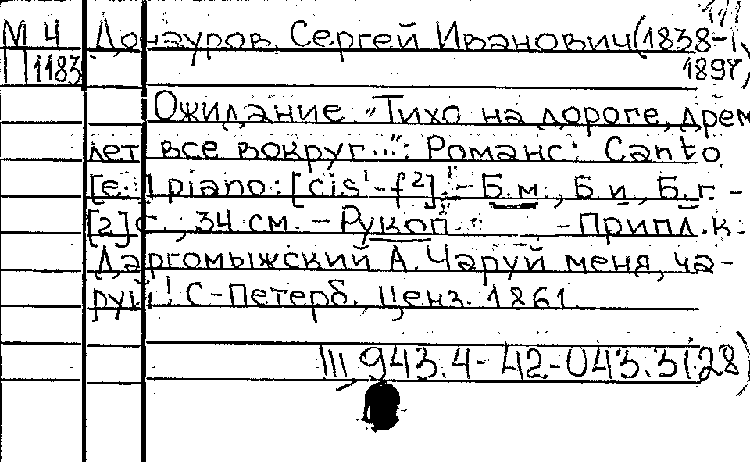 М 4 Донауров, Сергей Иванович (1838-
П 1183 1897)
Ожидание. "Тихо на дороге, дрем
лет все вокруг...": Романс: Canto
[e.] piano: [cis¹-f²]. - Б.м., Б.и, Б.г. -
[2] с., 34 см. - Рукоп. - Припл.к:
Даргомыжский А. Чаруй меня, ча-
руй! С-Петерб., Ценз. 1861.
III, 943.4-42-043.3(28)